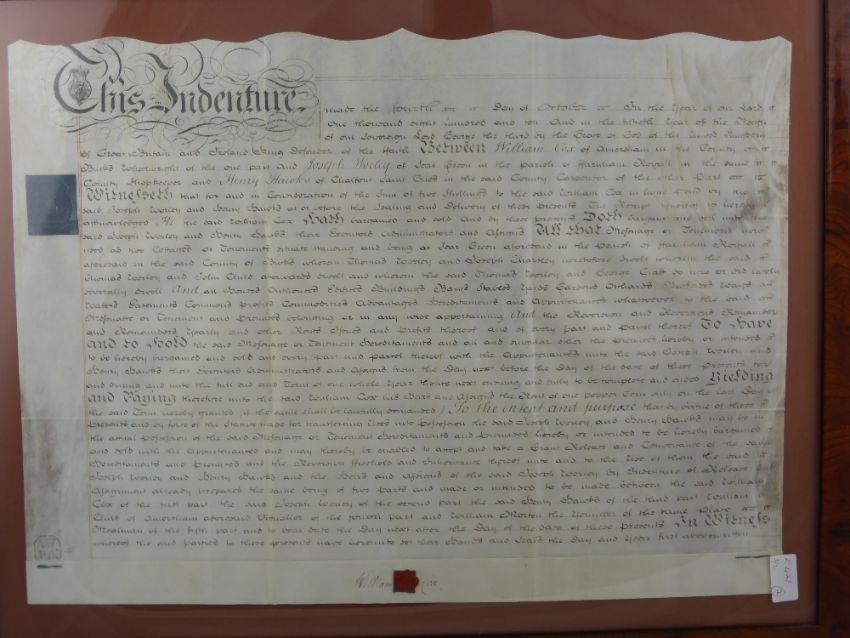 This Indenture made the fourth Day of October In the Year of our Lord
One thousand eight hundred and ten And in the fiftieth Year of the Reign
of our Sovereign Lord George the third by the Grace of God of the United Kingdom
of Great Britain and Ireland King Defender of the Faith Between William Cox of Amersham in the County of
Bucks of the one part And Joseph Worley of Seer Green in the Parish of Farnham Royall in the same
County Shopkeeper and Henry of Chalfont Saint Giles in the said County Carpenter of the other Part
Witnesseth that for and in Consideration of the Sum of five Shillings to the said William Cox in hand paid by the
said Joseph Worley and Henry at or before the Sealing and Delivery of these Presents The Receipt whereof is hereby
acknowledged He the said William Cox Hath bargained and sold And by these presents Doth bargain and sell unto the
said Joseph Worley and Henry their Executors Administrators and Assigns All that Messuage or Tenement
used as two Cottages or Tenements situate standing and being at Seer Green aforesaid in the Parish of Farnham Royall
aforesaid in the said County of Bucks wherein Thomas Worley and Joseph heretofore dwelt wherein the said
Thomas Worley and John Child afterwards dwelt and wherein the said Thomas Worley and George do now or did lately
severally dwell And all Houses Outhouses Edifices Buildings Barns Stables Yards Gardens Orchards Ways
Waters Easements Commons Profits Commodities Advantages Hereditaments and Appurtenances whatsoever to the said
Messuage or Tenement and Premises belonging or in any wise appertaining And the Reversion and Reversions Remainder
and Remainders Yearly and other Rents Issues and Profits thereof and of every part and Parcel thereof To Have
and to Hold the said Messuage or Tenement Hereditaments and all and singular other the Premises hereby or intended
to be hereby bargained and sold and every part and Parcel thereof with the Appurtenances unto the said Joseph Worley and
Henry their Executors Administrators and Assigns from the Day next before the Day of the date of these Presents for
and during and unto the full end and Term of one whole Year thence next ensuing and fully to be complete and ended Yielding
and Paying therefore unto the said William Cox his Heirs and Assigns the Rent of one pepper Corn only on the last Day of
the said Term hereby granted (if the same shall be lawfully demanded) To the intent and purpose that by virtue of these
Presents and by force of the Statute made for transferring Uses into Possession the said Joseph Worley and Henry may be in
the actual Possession of the said Messuage or Tenement Hereditaments and Premises hereby or intended to be hereby bargained
and sold with the Appurtenances and may thereby be enabled to accept and take a Grant Release and Conveyance of the same
Hereditaments and Premises and the Reversion freehold and Inheritance thereof unto and to the Use of them the said
Joseph Worley and Henry and the Heirs and Assigns of the said Joseph Worley by Indenture of Release and
Assignment already prepared the same being of five parts and made or intended to be made between the said William
Cox of the first part the said Joseph Worley of the second part the said Henry of the third part William
Child of Amersham aforesaid Victualler of the fourth part and William Morten the Younger of the same Place
Mealman of the fifth part and to bear date the Day next after the Day of the date of these Presents In Witness
whereof the said parties to these presents have hereunto set their Hands and Seals the Day and Year first above written
William Cox